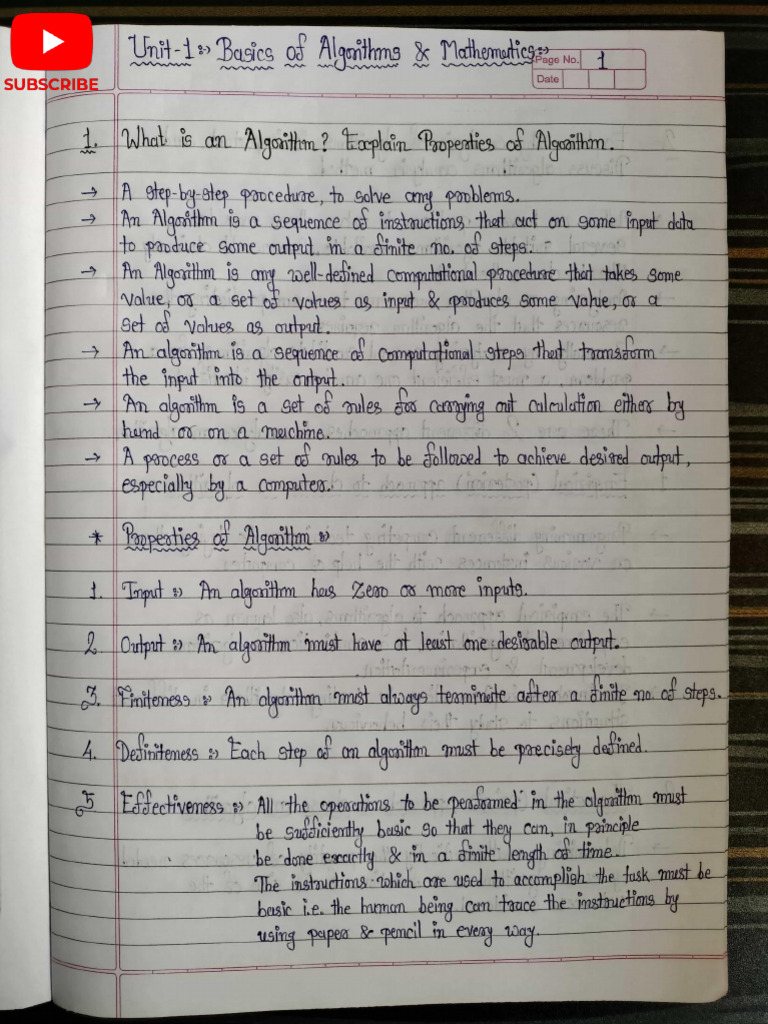 SUBSCRIBE
Unit-1 :» Basics of Algorithms & Mathematics :»
Page No. 1
Date
1. What is an Algorithm? Explain Properties of Algorithm.
→ A step-by-step procedure, to solve any problems.
→ An Algorithm is a sequence of instructions that act on some input data
to produce some output in a finite no. of steps.
→ An Algorithm is any well-defined computational procedure that takes some
value, or a set of values as input & produces some value, or a
set of values as output.
→ An algorithm is a sequence of computational steps that transform
the input into the output.
→ An algorithm is a set of rules for carrying out calculation either by
hand or on a machine.
→ A process or a set of rules to be followed to achieve desired output,
especially by a computer.
* Properties of Algorithm :»
1. Input :» An algorithm has Zero or more inputs.
2. Output :» An algorithm must have at least one desirable output.
3. Finiteness :» An algorithm must always terminate after a finite no. of steps.
4. Definiteness :» Each step of an algorithm must be precisely defined.
5 Effectiveness :» All the operations to be performed in the algorithm must
be sufficiently basic so that they can, in principle
be done exactly & in a finite length of time.
The instructions which are used to accomplish the task must be
basic i.e. the human being can trace the instructions by
using paper & pencil in every way.